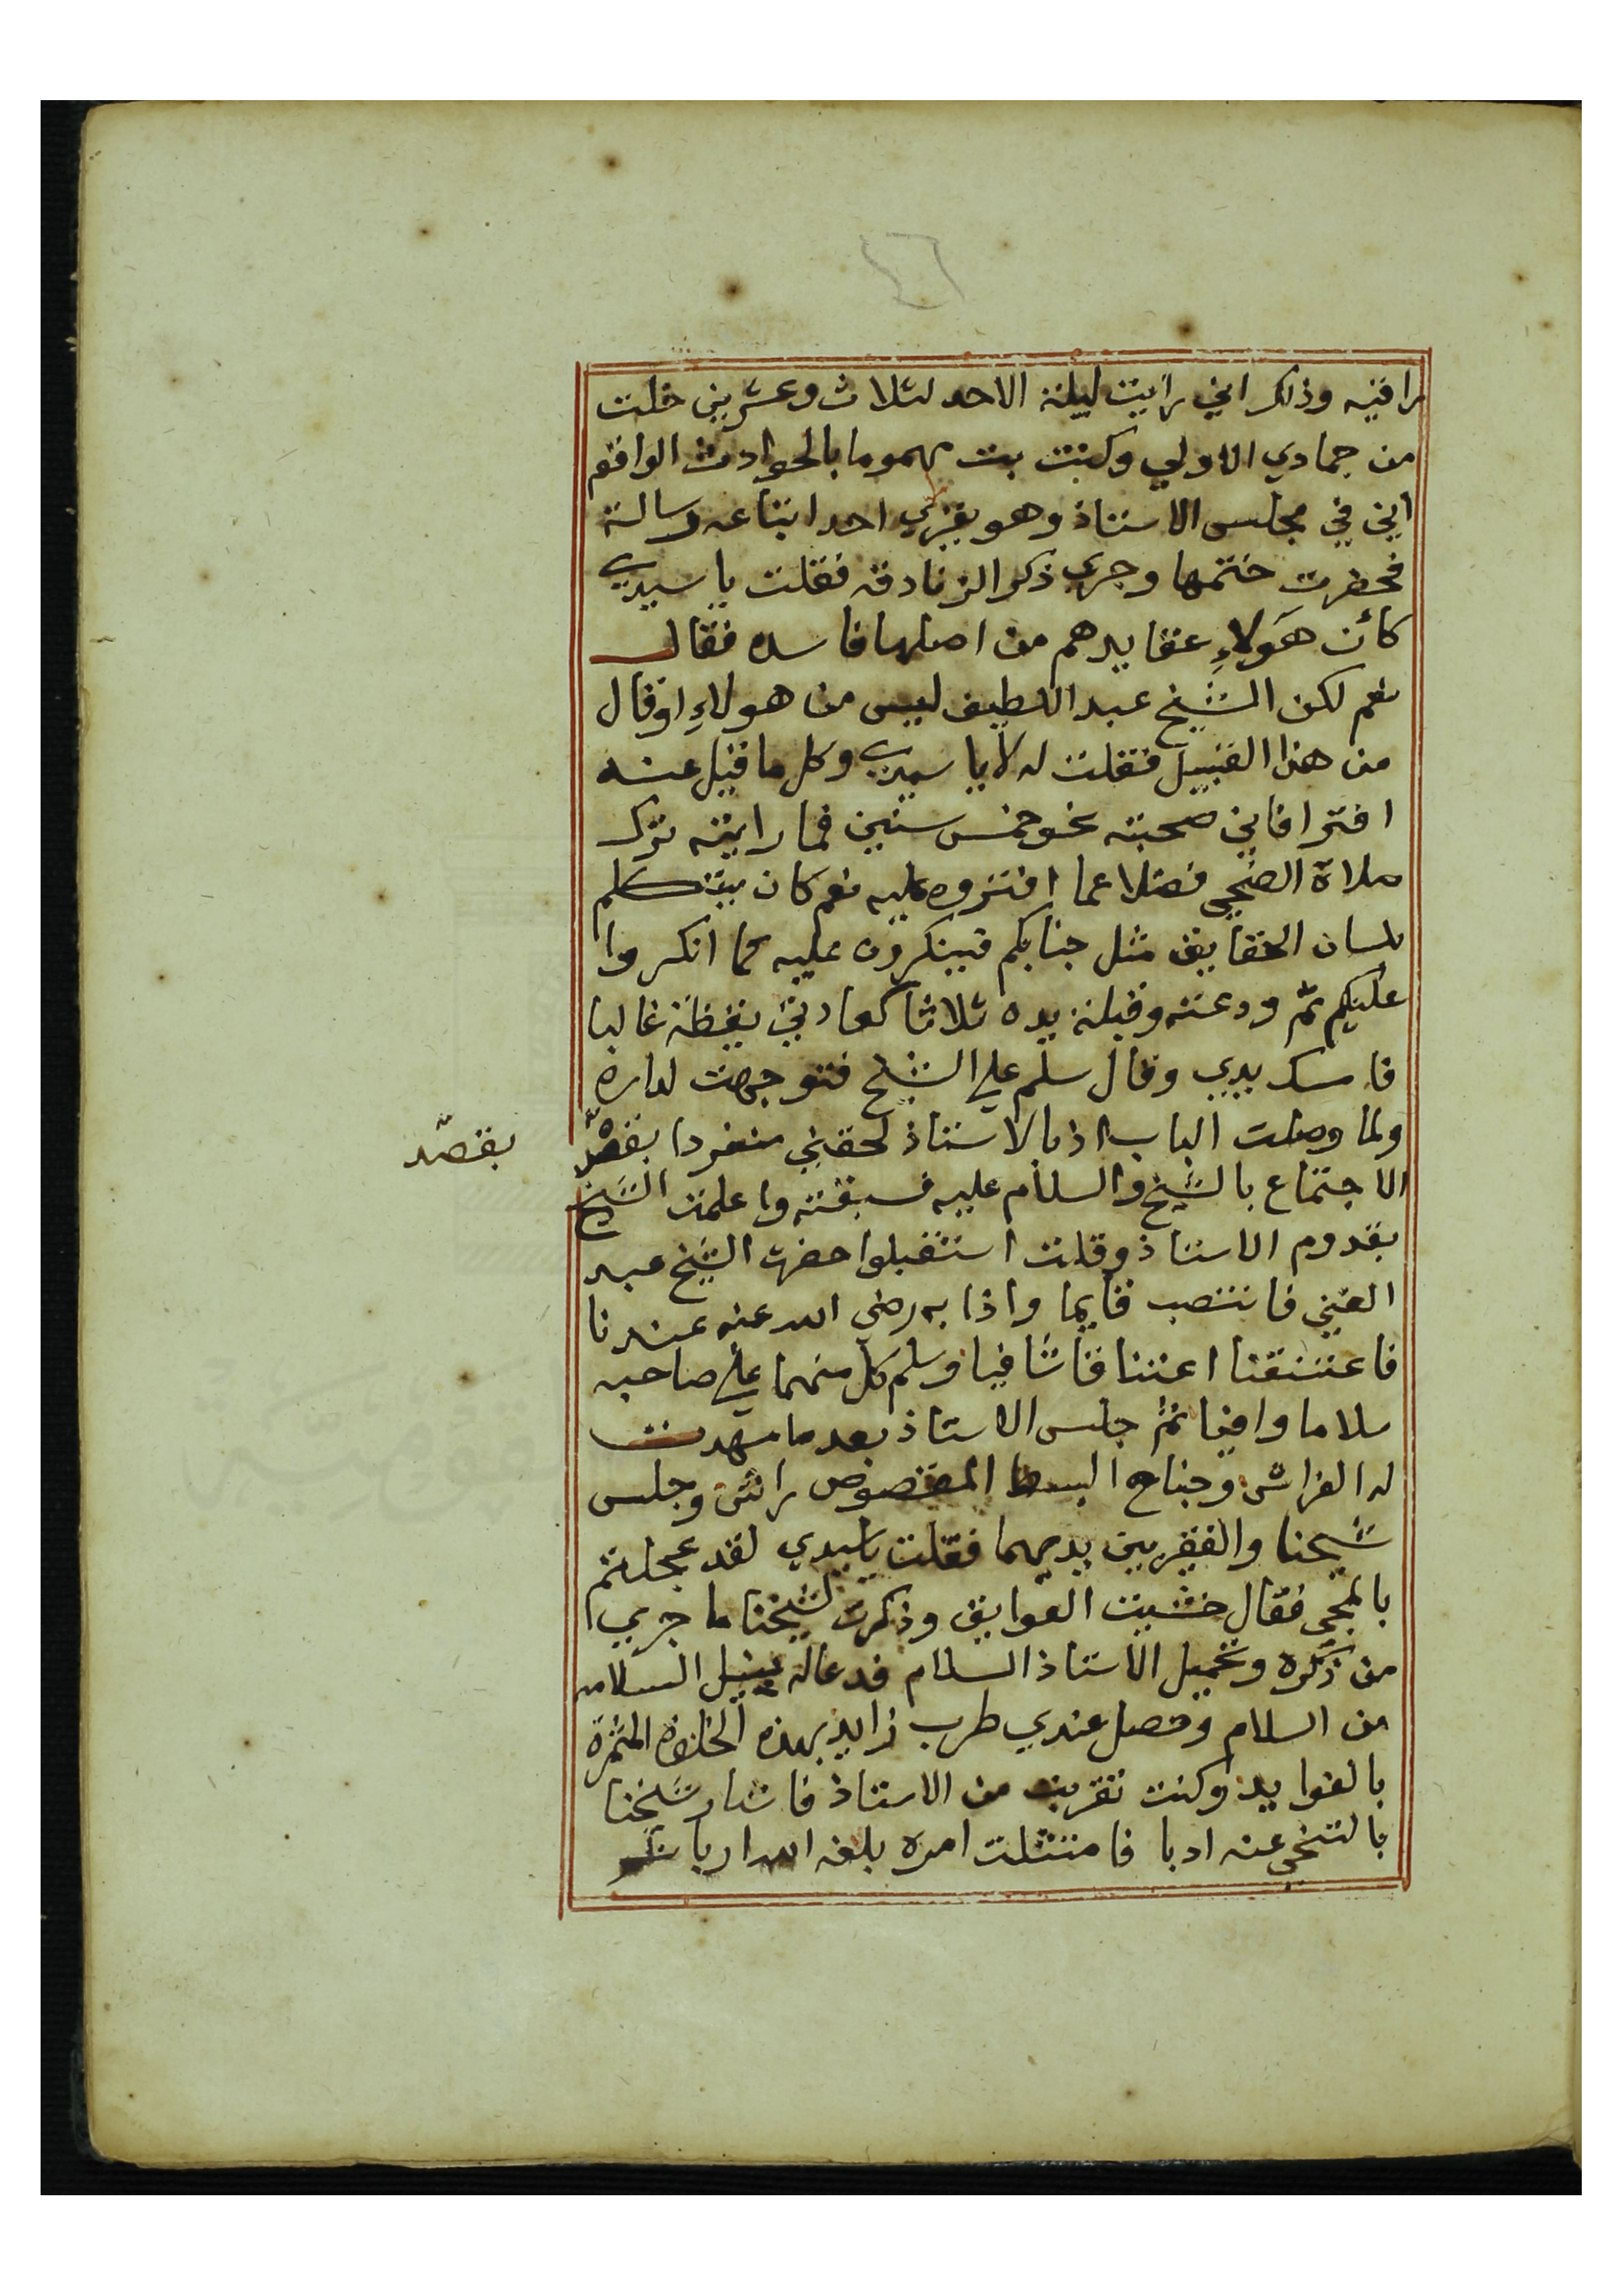 ٤٦
راقيه وذلك اني رايت ليلة الاحد لثلاث وعشرين خلت
من جمادي الاولي وكنت بت مهموما بالحوادث الواقع
اني في مجلس الاستاذ وهو يقري احد اتباعه رسالة
فحضرت ختمها وجري ذكر الزنادقه فقلت يا سيدي
كأن هَولاءِ عقايدهم من اصلها فاسده فقال
نعم لكن الشيخ عبد اللطيف ليس من هولاءِ اوقال
من هذا القبيل فقلت له لا يا سيدي وكل ما قيل عنه
افترا فاني صحبته نحو خمس سنين فما رايته ترك
صلاة الضحي فضلا عما افتروه عليه نعم كان يتكلم
بلسان الحقايق مثل جنابكم فينكرون عليه كما انكروا
عليكم ثم ودعته وقبلة يده ثلاثا كعادتي يقظة غالبا
فامسك يدي وقال سلم علي الشيخ فتوجهت لداره
ولما وصلت الباب اذ بالاستاذ لحقني منفردا بقصْد
بقصد
الاجتماع بالشيخ والسلام عليه فسبقته واعلمت الشيخ
بقدوم الاستاذ وقلت استقبلوا حضرت الشيخ عبد
الغني فانتصب قايما واذا به رضي الله عنه عندنا
فاعتنقنا اعتناقا شافيا وسلم كل منهما علي صاحبه
سلاما وافيا ثم جلس الاستاذ بعد ما مهدت
له الفراش وجناح البسط المقصوص راش وجلس
شيخنا والفقير بين يديهما فقلت ياسيدي لقد عجلتم
بالمجي فقال خشيت العوايق وذكرت لشيخنا ما جري
من ذكره وتحميل الاستاذ السلام فدعاله بنيل السلامه
من السلام وحصل عندي طرب زايد بهذه الخلوة المثمرة
بالفوايد وكنت تقربت من الاستاذ فاشار شيخنا
بالتنحي عنه ادبا فامتثلت امره بلغه الله اربا